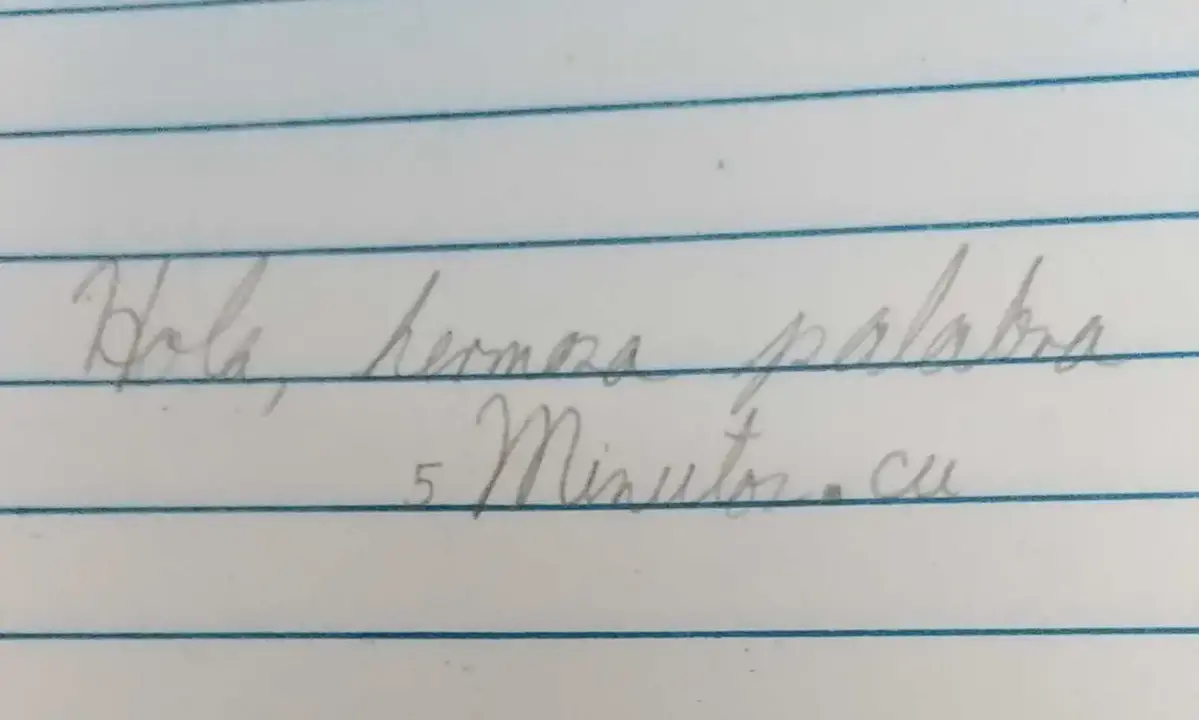 Hola, hermosa palabra
5 Minutos.cu